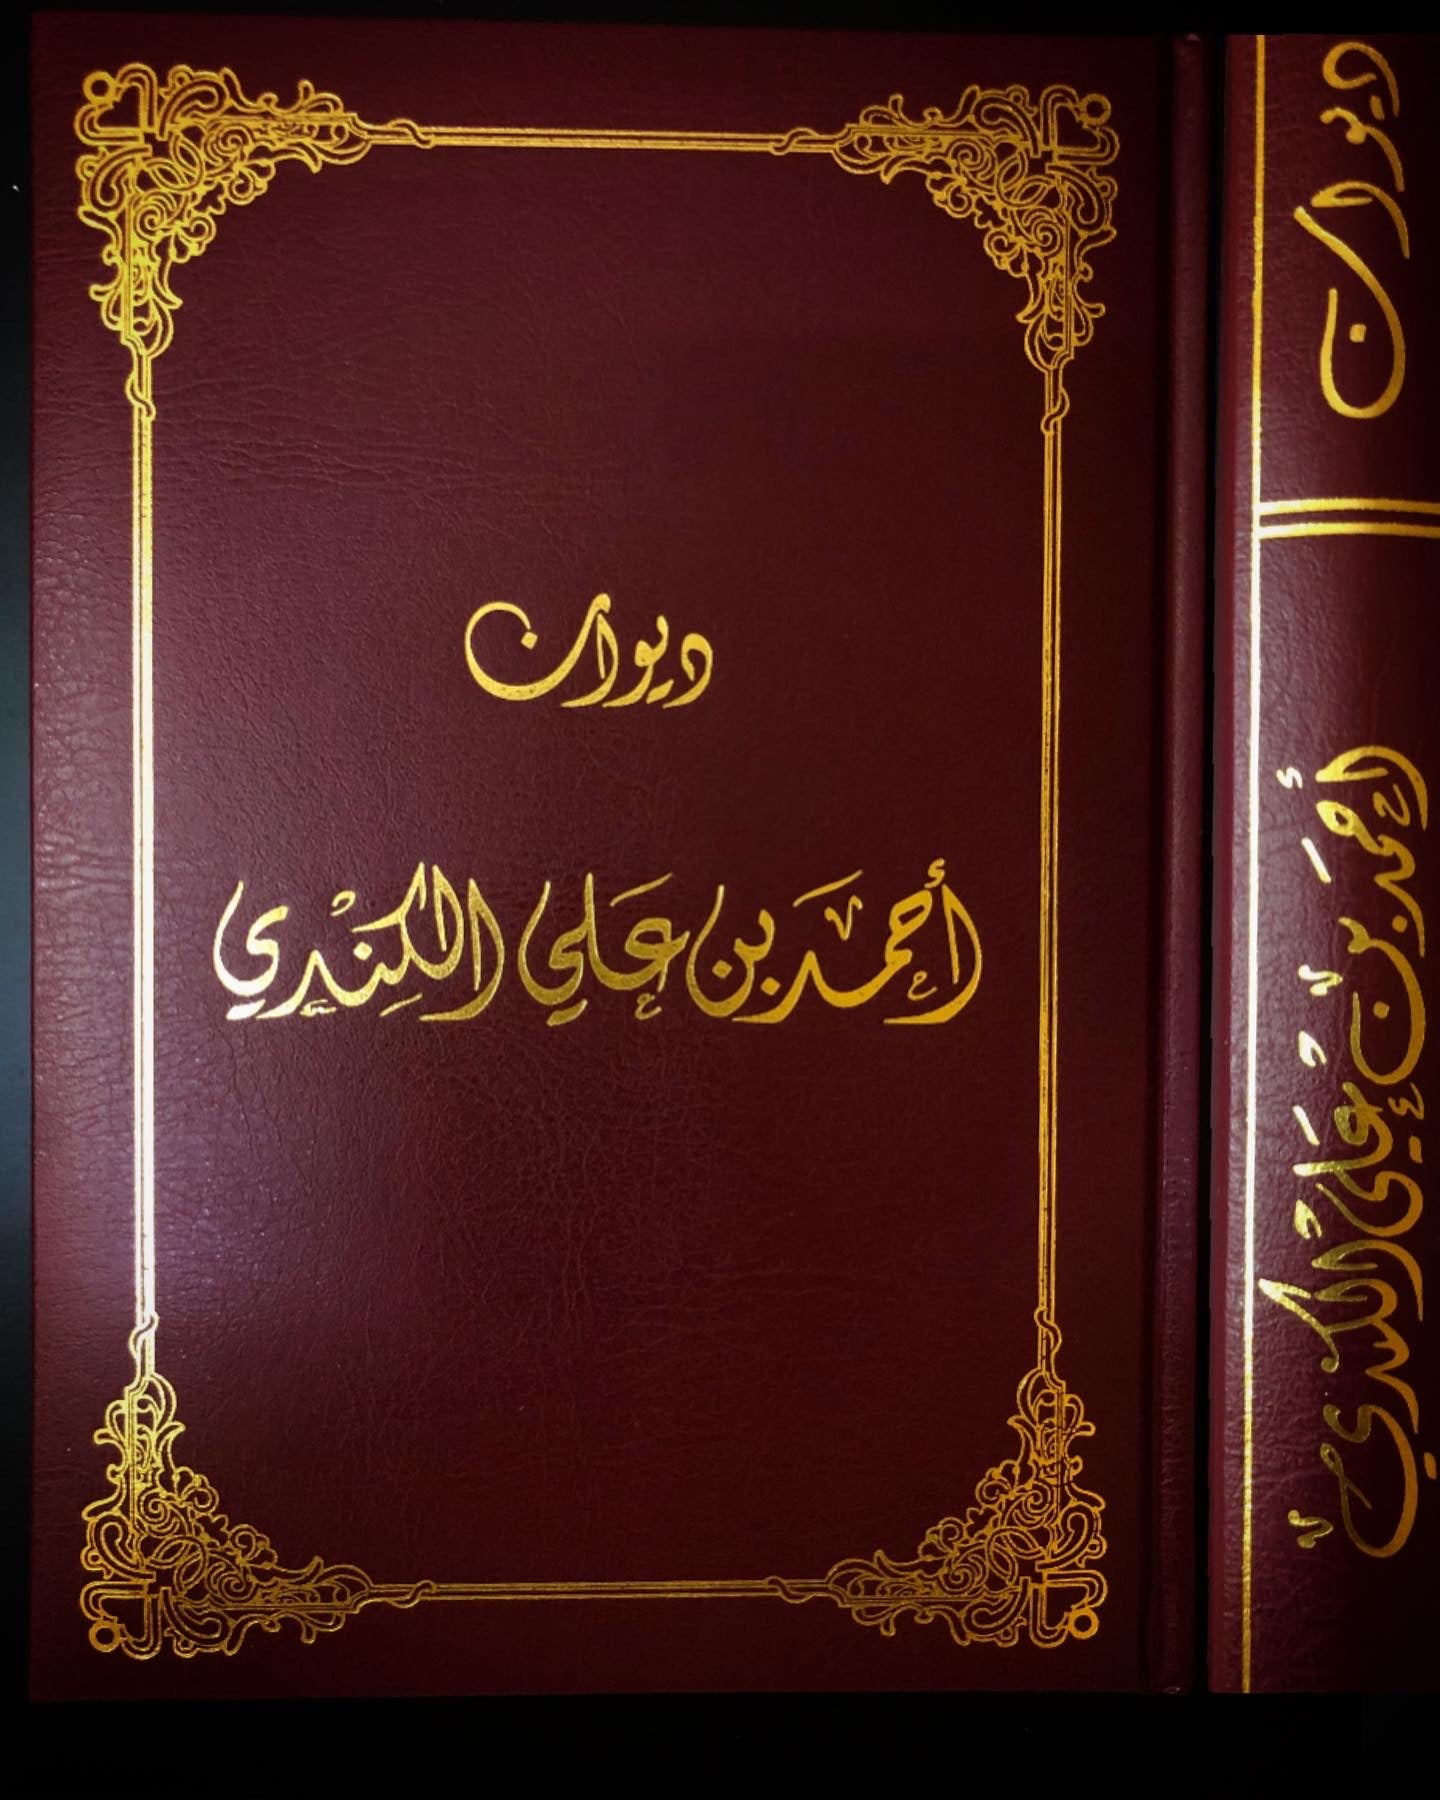 ديوان
أحمد بن علي الكِنْدي
ديوان
أحمَد بن عَلي الكندي